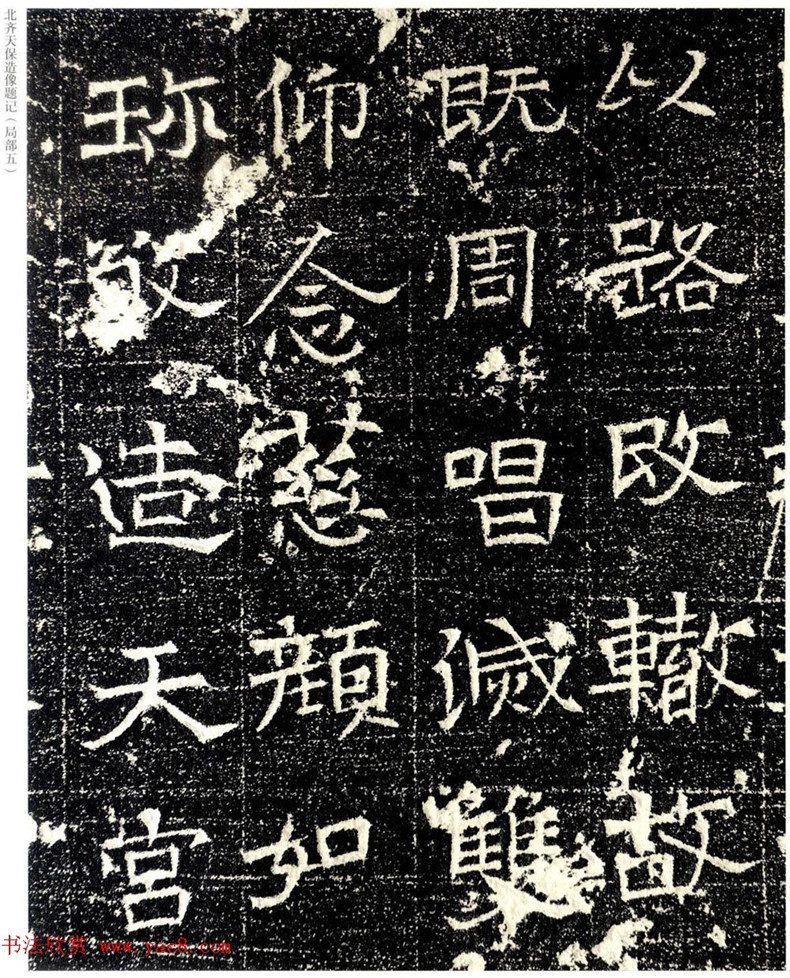 以路改轍故
既周唱滅雙
仰念慈顔如
珎敬造天宮
北齐天保造像题记（局部五）
书法欣赏 www.yac8.com